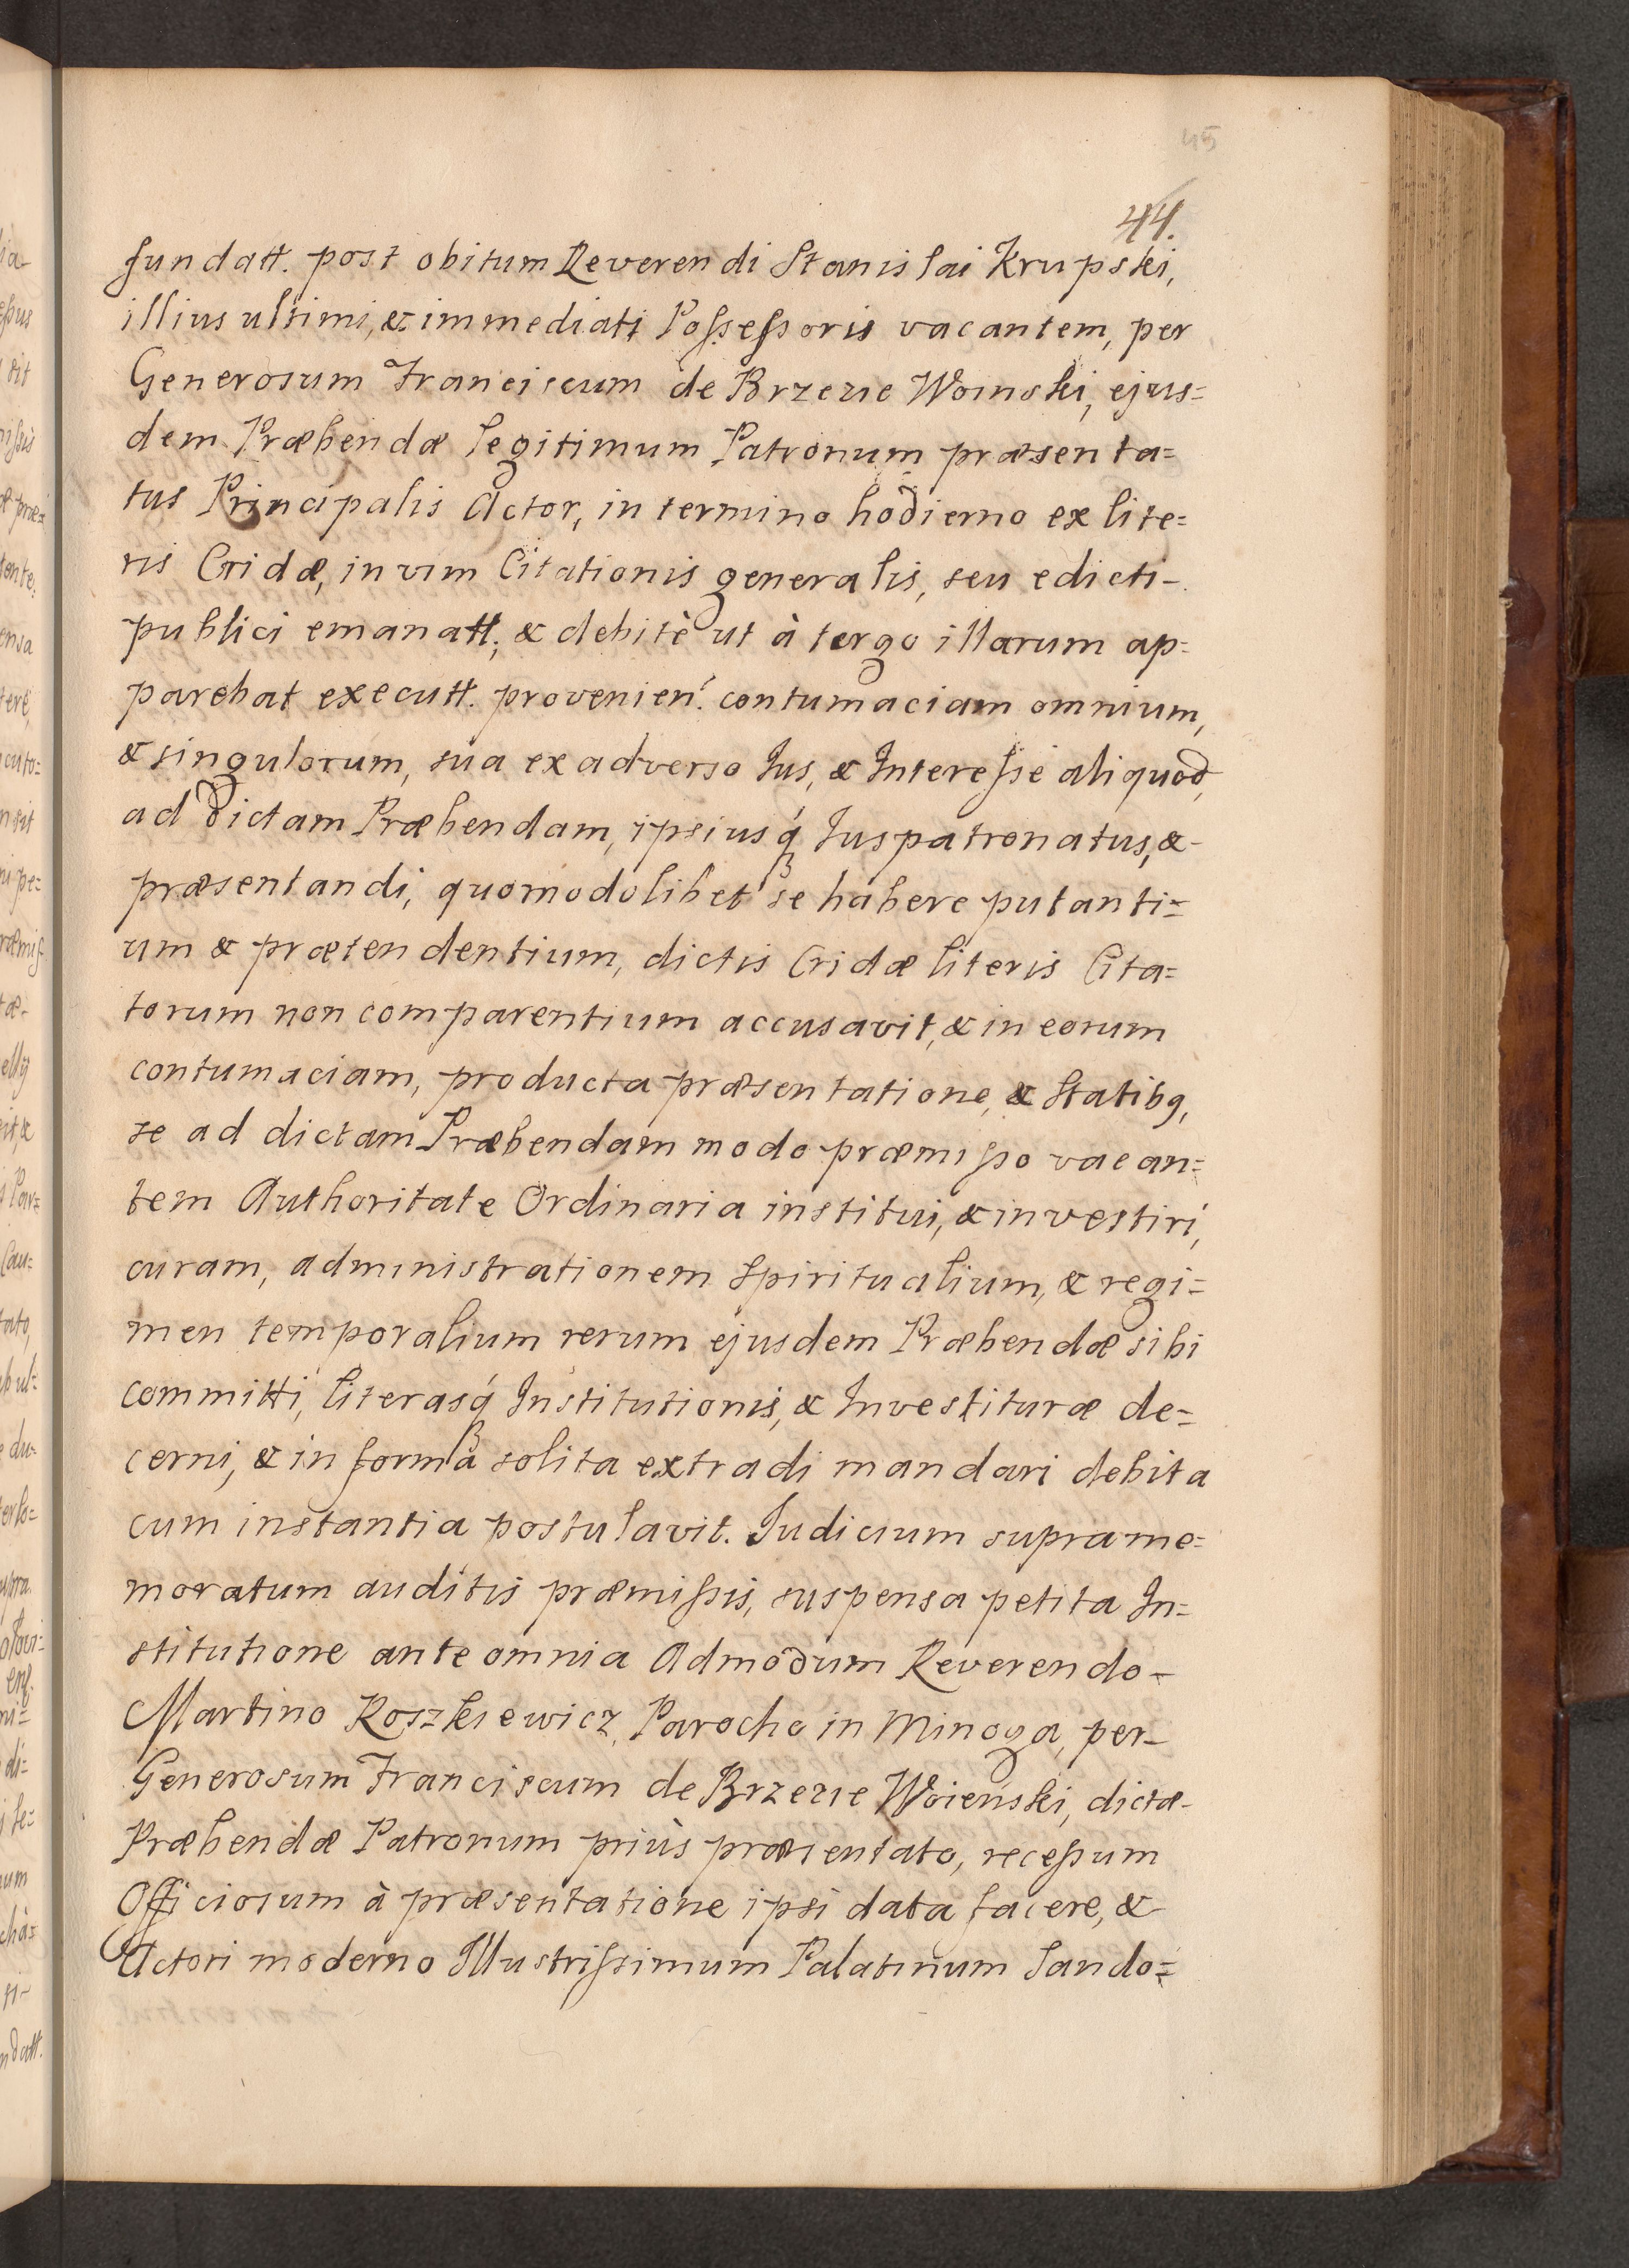 45
44.
fundatt. post obitum Reverendi Stanislai Krupski,
illius ultimi, & immediati Possessoris vacantem, per
Generosum Franciscum de Brzezie Woinski, ejus=
dem Præbendæ legitimum Patronum præsenta=
tus Principalis Actor, in termino hodierno ex lite=
ris Cridæ, in vim Citationis generalis, seu edicti-
publici emanatt, & debitè ut à tergo illarum ap=
parebat executt. provenien. contumaciam omnium,
& singulorum, sua ex adverso Jus, & Interesse aliquod,
ad dictam Præbendam, ipsiusq́ Juspatronatus, &-
præsentandi, quomodolibet se habere putanti=
um & prætendentium, dictis Cridæ literis Cita=
torum non comparentium accusavit, & in eorum
contumaciam, producta præsentatione, & Statibq,
se ad dictam Præbendam modo præmisso vacan=
tem Authoritate Ordinaria institui, & investiri,
curam, administrationem Spiritualium, & regi=
men temporalium rerum ejusdem Præbendæ sibi
committi, literasq́ Institutionis, & Investituræ de=
cerni, & in formâ solita extradi mandari debita
cum instantia postulavit. Judicium suprame=
moratum auditis præmissis, suspensa petita In=
stitutione ante omnia Admodum Reverendo-
Martino Roszkiewicz, Parocho in Minoga, per-
Generosum Franciscum de Brzezie Woieński, dictæ-
Præbendæ Patronum priùs præsentato, recessum
Officiosum à præsentatione ipsi data facere, &
Actori moderno Illustrissimum Palatinum Sando=